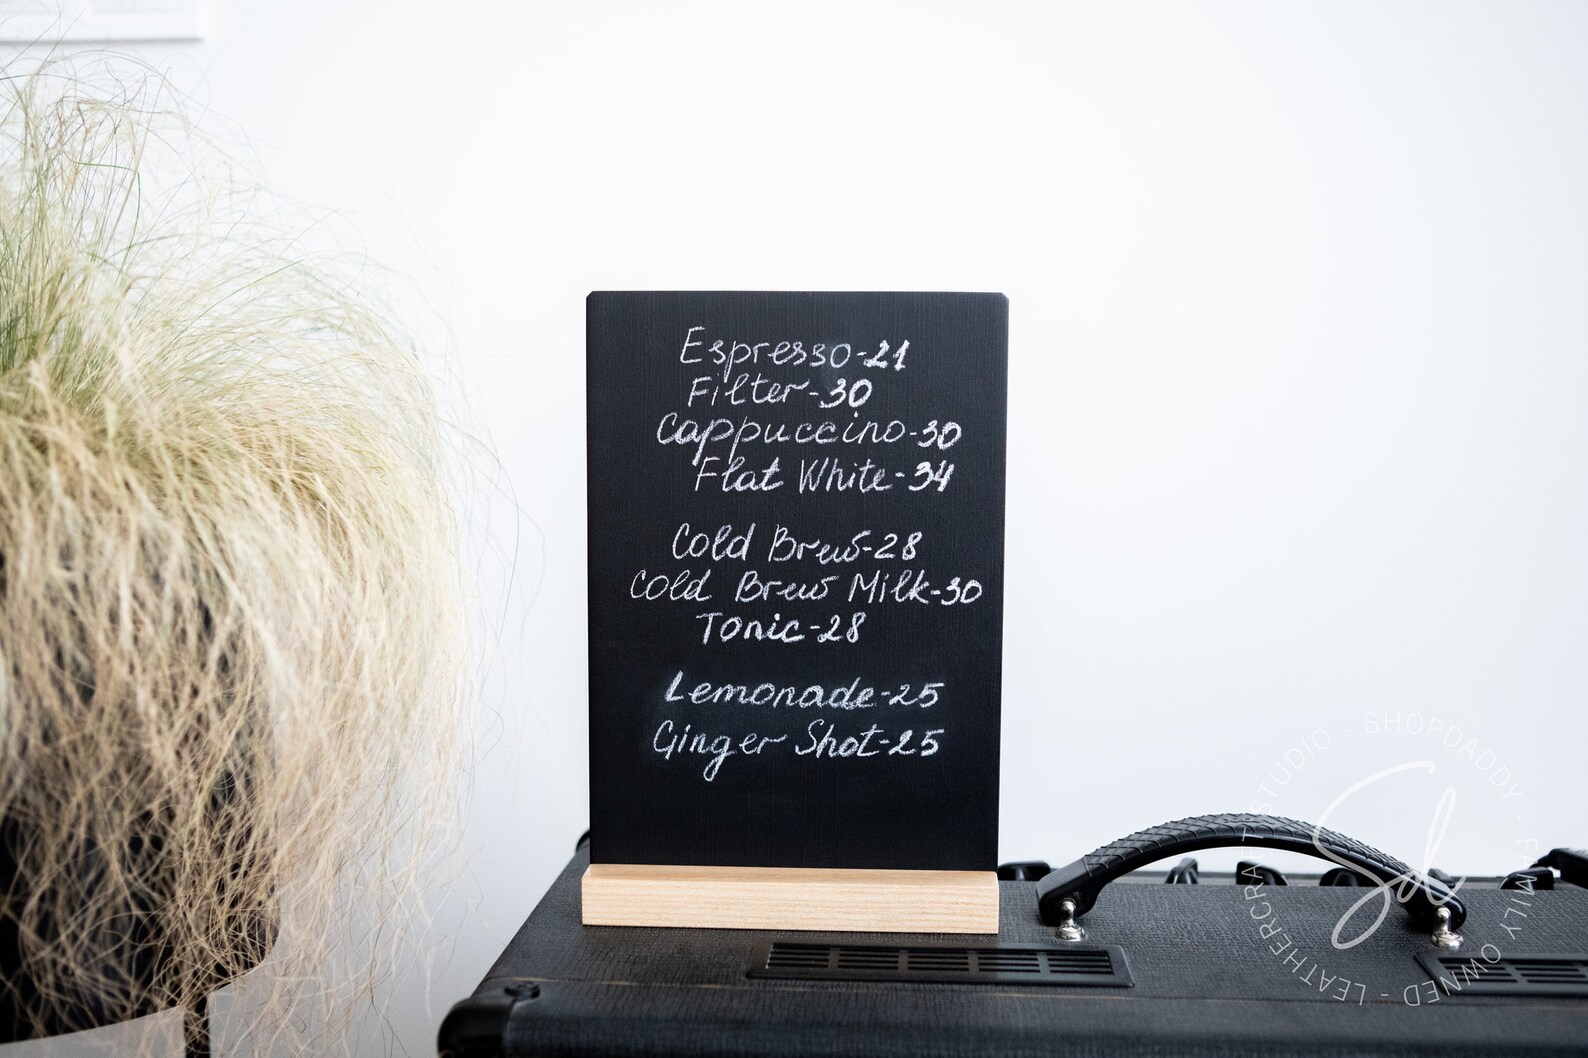 Espresso-21
Filter-30
Cappuccino-30
Flat White-34
Cold Brew-28
Cold Brew Milk-30
Tonic-28
Lemonade-25
Ginger Shot-25
SHOPDADDY - FAMILY OWNED - LEATHERCRAFT STUDIO -
Sd